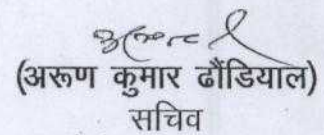 (अरूण कुमार ढौंडियाल)
सचिव